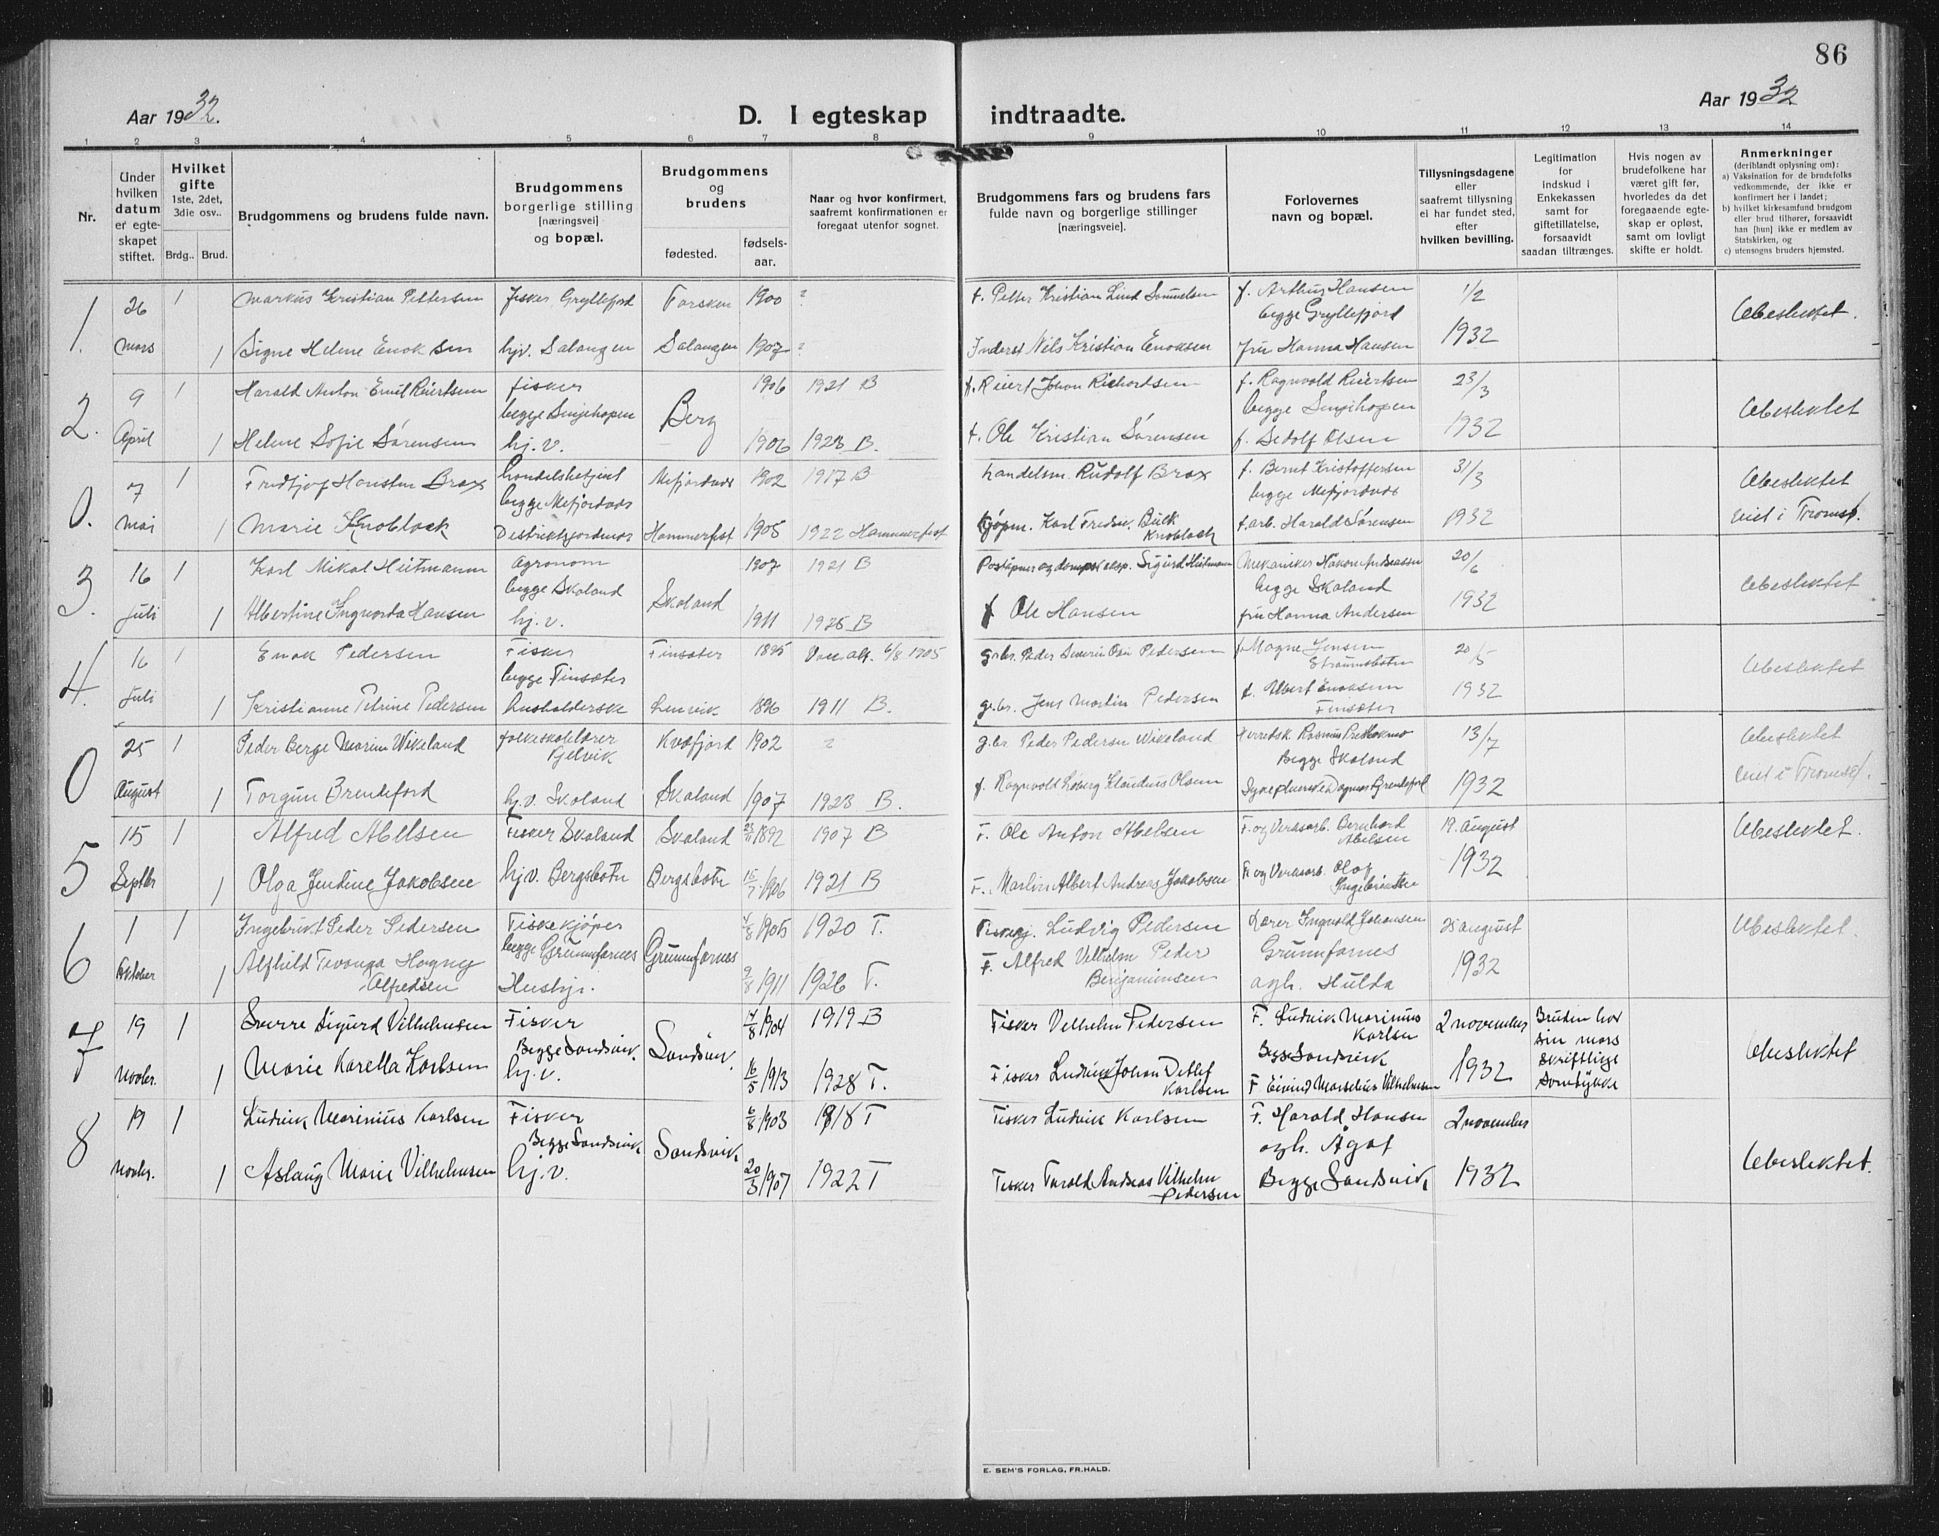 86
Aar 1932.
D. I egteskap indtraadte.
Aar 1932
1 2 3 4 5 6 7 8 9 10 11 12 13 14
Nr.
Under hvilken datum er egteskapet stiftet.
Hvilket gifte 1ste, 2det, 3die osv..
Brdg.. Brud.
Brudgommens og brudens fulde navn.
Brudgommens borgerlige stilling [næringsvei] og bopæl.
Brudgommens og brudens
fødested. fødselsaar.
Naar og hvor konfirmert, saafremt konfirmationen er foregaat utenfor sognet.
Brudgommens fars og brudens fars fulde navn og borgerlige stillinger [næringsveie].
Forlovernes navn og bopæl.
Tillysningsdagene eller saafremt tillysning ei har fundet sted, efter hvilken bevilling.
Legitimation for indskud i Enkekassen samt for giftetillatelse, forsaavidt saadan tiltrænges.
Hvis nogen av brudefolkene har været gift før, hvorledes da det foregaaende egteskap er opløst, samt om lovligt skifte er holdt.
Anmerkninger (deriblandt oplysning om): a) Vaksination for de brudefolks vedkommende, der ikke er konfirmert her i landet; b) hvilket kirkesamfund brudgom eller brud tilhører, forsaavidt han [hun] ikke er medlem av Statskirken, og c) utensogns bruders hjemsted.
1. 26 1 Markus Kristian Pettersen fisker Gryllefjord Torsken 1900 ? f. Petter Kristian Lind Samuelsen f. Arthur Hansen 1/2
begge Gryllefjord Ubeslektet.
Mars 1 Signe Helene Enoksen hjv. Salangen Salangen 1907 ? Inderst Nils Kristian Enoksen fru Hanna Hansen 1932
2. 9 1 Harald Anton Emil Reiertsen fisker 1906 1921 B f. Reiert Johan Richardsen f. Ragnvald Reiertsen 23/3
begge Senjehopen Berg begge Senjehopen Ubeslektet
April 1 Helene Sofie Sørensen hj.v. 1906 1923 B. f. Ole Kristian Sørensen f. Sedolf Olsen 1932
0. 7 1 Fridtjof Hansten Brox handelsbetjent Mefjordvær 1902 1917 B handelsm. Rudolf Brox f. Bernt Kristoffersen 31/3 Ubeslektet
begge Mefjordvær begge Mefjordvær
Mai 1 Marie Knoblock Distriktsjordmor Hammerfest 1905 1922 Hammerfest kjøpm. Karl Fredr. Buck Knoblock f.arb. Harald Sørensen 1932 viet i Tromsø.
3. 16 1 Karl Mikal Heitmann Agronom 1907 1921 B Poståpner og dampsk.eksp. Sigurd Heitmann Mekaniker Håkon Andreassen 20/6
begge Skaland Skaland begge Skaland Ubeslektet
Juli 1 Albertine Ingvarda Hansen hj.v. 1911 1925 B f Ole Hansen fru Hanna Andersen 1932
4. 16 1 Enok Pedersen Fisker Finsæter 1895 6/8 1905 grbr. Peder Severin Pedersen f. Magne Jensen Straumsbotn 20/5
begge Finsæter Ubeslektet
Juli 1 Kristianne Petrine Pedersen husholderske Lenvik 1896 1911 B. gr.br. Jens Martin Pedersen f. Albert Enoksen Finsæter 1932
0 25 1 Peder Berge Marius Wikeland folkeskolelærer Kvæfjord 1902 ? g.br. Peder Pedersen Wikeland 13/7 Ubeslektet
Begge Skaland
August 1 Torgun Brendeford hj.v. Skaland Skaland 1907 1923 B. f. Ragnvald Klaudius Olsen 1932 viet i Tromsø.
5 15 1 Alfred Abelsen Fisker Skaland Skaland 1892 1907 B F. Ole Anton Abelsen F. og Verksarb. Bernhard Abelsen 19. August Ubeslektet.
Septbr 1 Olga Jentine Jakobsen hjv. Bergsbotn Bergsbotn 15/7 1906 1921 B F. Martin Albert Andreas Jakobsen F. og Verksarb. Olaf Ingebrigtsen 1932
6 1 1 Ingebrikt Peder Pedersen Fiskekjøper 4/8 1905 1920 T. Fiskekj. Ludvig Pedersen Lærer Ingvald Johansen 25 august Ubeslektet.
begge Grunnfarnes Grunnfarnes Grunnfarnes
Oktober 1 Alfhild Tevanga Hagny Alfredsen Hushj. 9/8 1911 1926 T. F. Alfred Vilhelm Peder Benjaminsen ogh. Hulda 1932
7 19 1 Sverre Sigurd Vilhelmsen Fisker 14/8 1904 1919 B Fisker Vilhelm Pedersen F. Ludvik Marinius Karlsen 2 november Bruden har sin mors skriftlige samtykke
Begge Sandsvik. Sandsvik. Begge Sandsvik Ubeslektet
Novbr. 1 Marie Karella Karlsen hj.v. 16/5 1913 1928 T. Fisker Ludvik Johan Detlef Karlsen F Eivind Marselius Vilhelmsen 1932
8 19 1 Ludvik Marinius Karlsen Fisker 6/8 1903 1918 T Fisker Ludvik Karlsen F. Harald Hansen 2 november
Begge Sandsvik Sandsvik. ogh. Ågot Ubeslektet.
Novbr. 1 Aslaug Marie Vilhelmsen hj.v. 20/3 1907 1922 T Fisker Tarald Andreas Vilhelm Pedersen Begge Sandsvik 1932
E. SEM'S FORLAG, FR.HALD.